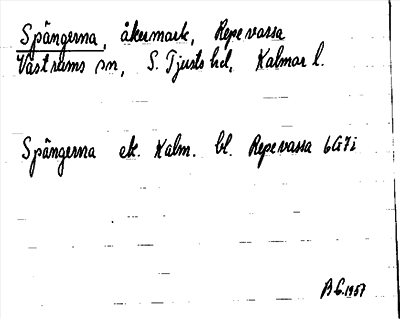 Spångerna, åkermark, Repevassa
Västrums sn, S. Tjusts hd, Kalmar l.
Spångerna ek. Kalm. bl. Repevassa 6G7i
1957